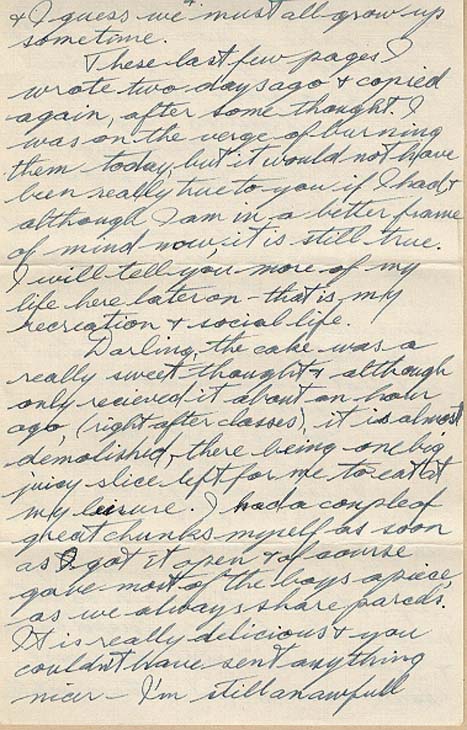 & I guess we must all grow up
sometime.
These last few pages I
wrote two days ago & copied
again, after some thought. I
was on the verge of burning
them today, but it would not have
been really true to you if I had, &
although I am in a better frame
of mind now, it is still true.
I will tell you more of my
life here later on - that is, my
recreation & social life.
Darling, the cake was a
really sweet thought & although
only recieved it about an hour
ago, (right after classes), it is almost
demolished, there being one big
juicy slice left for me to eat at
my leisure. I had a couple of
great chunks myself as soon
as I got it open & of course
gave most of the boys a piece,
as we always share parcels.
It is really delicious & you
couldn't have sent anything
nicer - I'm still an awfull